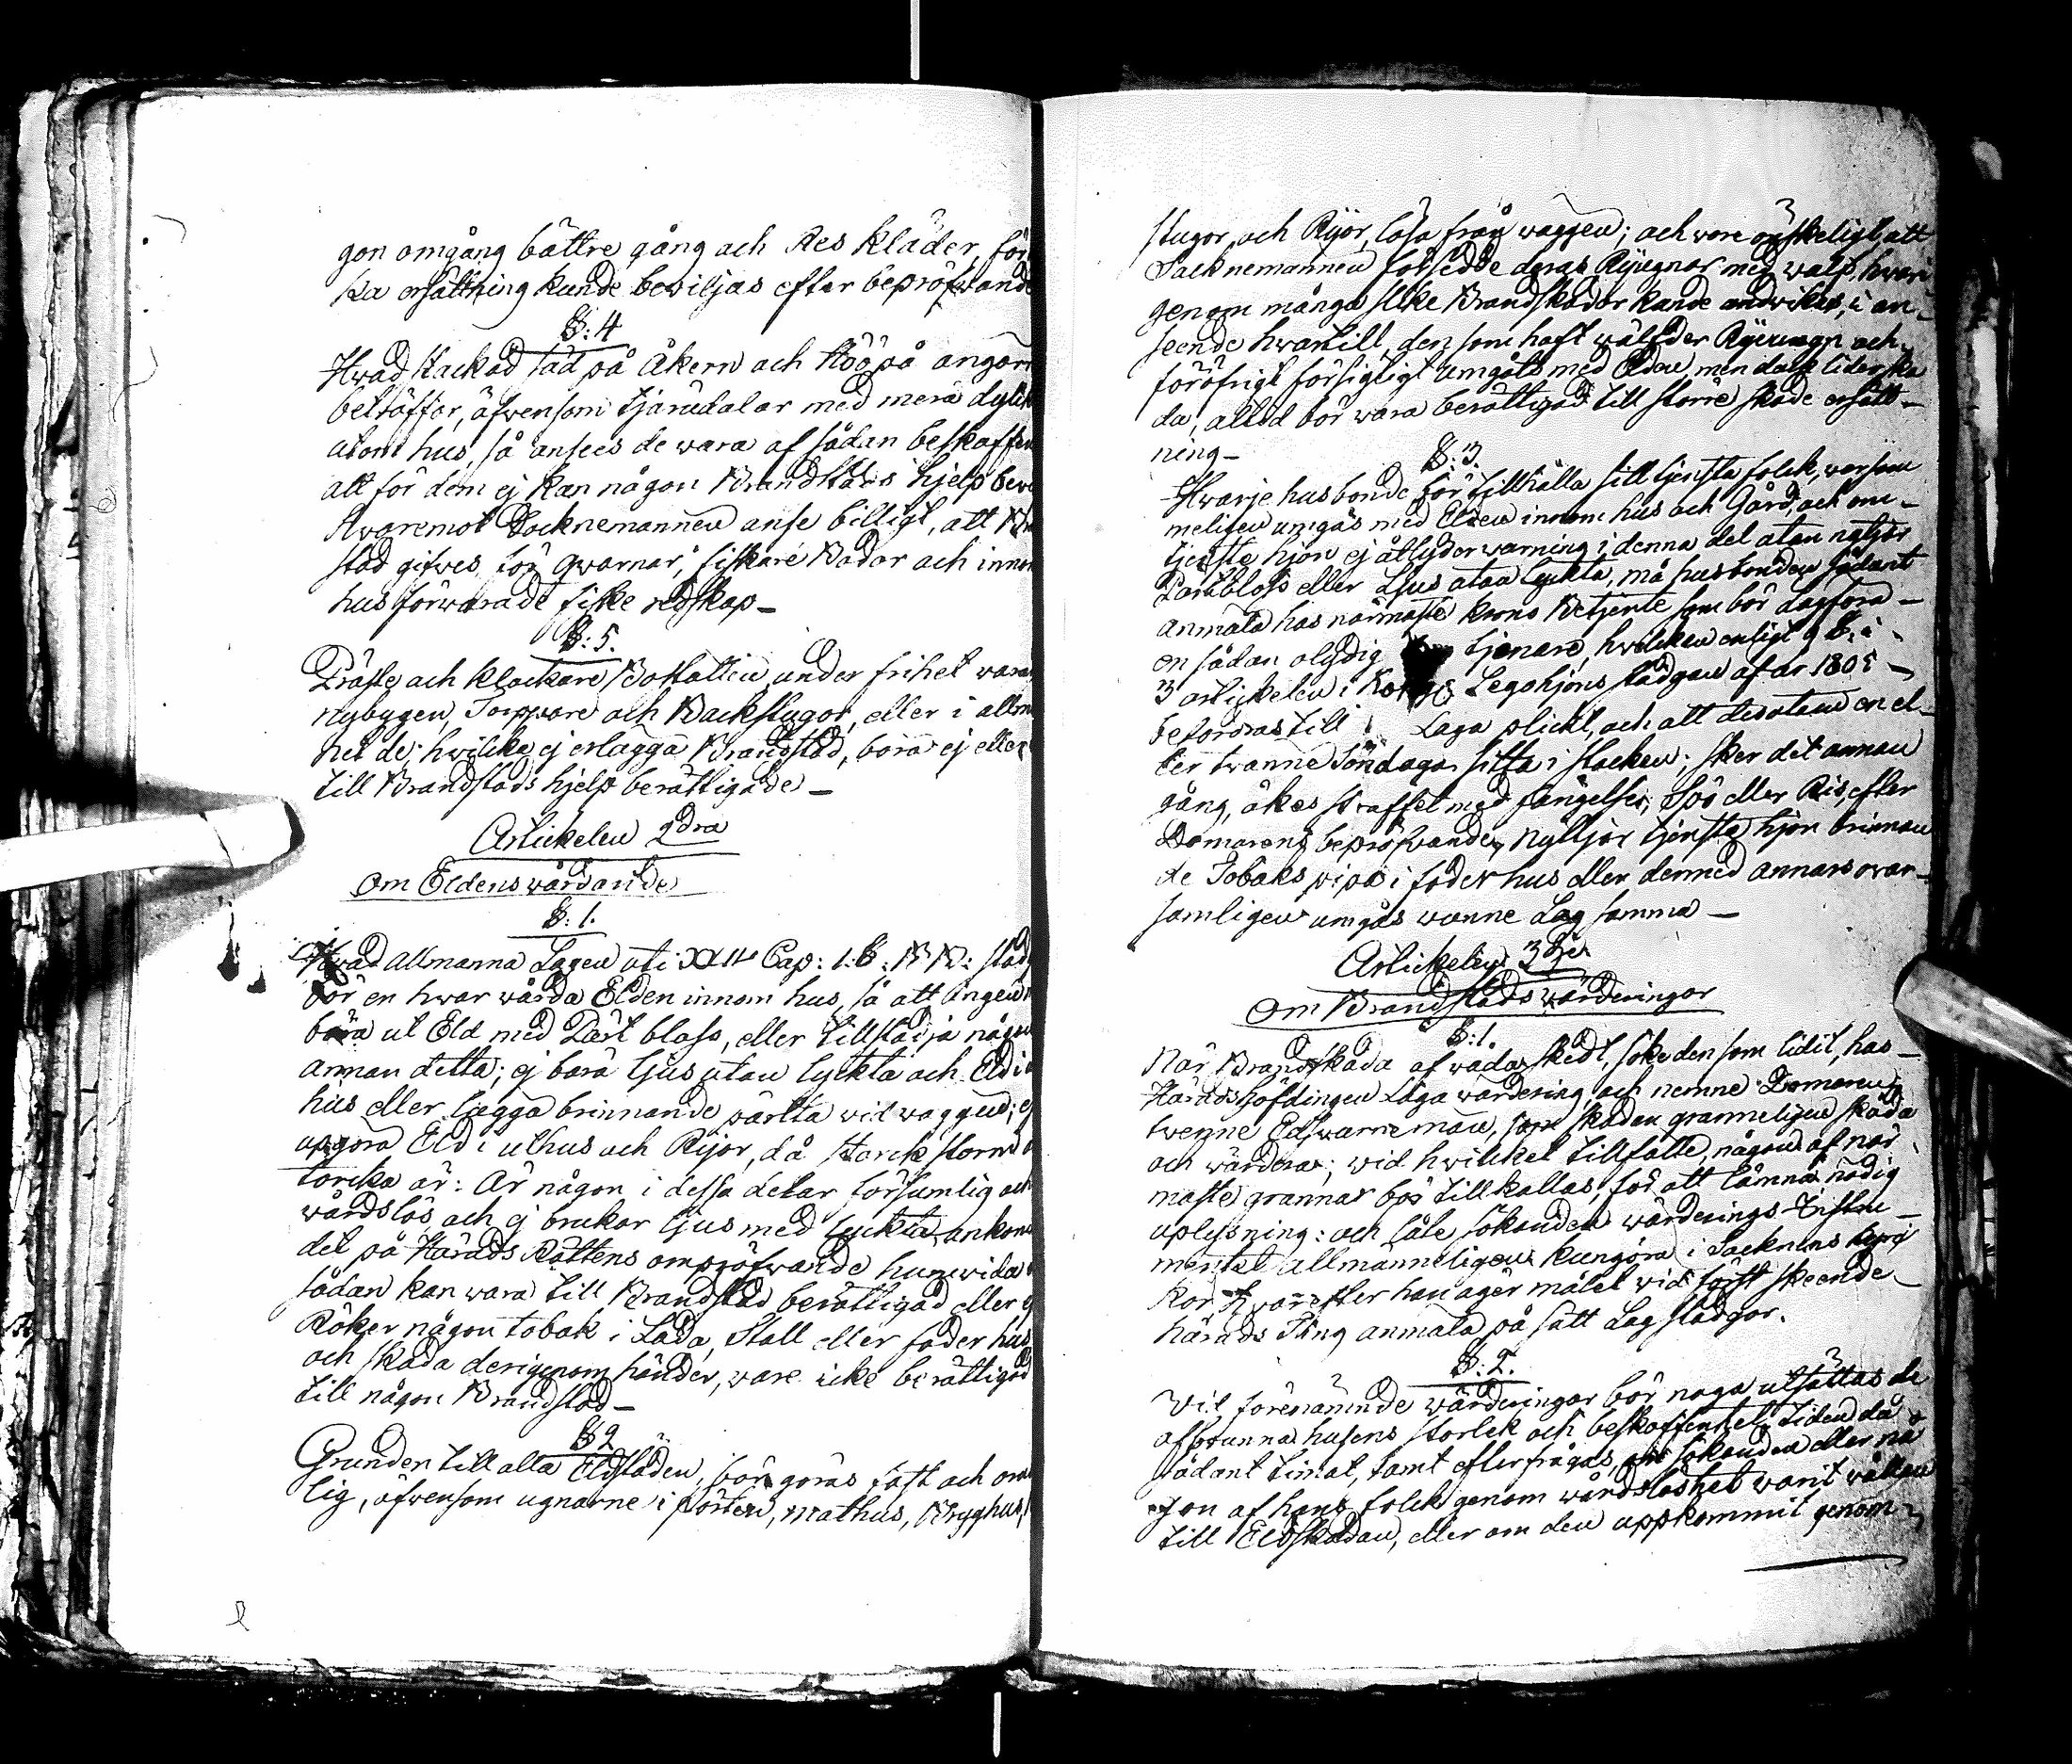 gon omgång bättre gång och Res kläder, för
ka ersättning kunde bewiljas efter bepröfwande
§: 4
Hwad Hackad säd på Åkern och Höö på ängom
beträffar, äfwensom tjärudalar med mera dylikt
utom hus, så ansees de wara af sådan beskaffen
att för dem ej kan någon Brandstods hjelp bewi
Hwaremot Socknemannen anse billigt, att Bran
stod gifwes för qwarnar, fiskare Bodar och innom
hus förwarade fiske redskap –
§: 5.
Präste och Klockare Boställen under frihet waran
Nybygen, Torppare och Backstugor, eller i allmä
het de, hwilka ej erlägga Brandstod, böra ej eller
till Brandstods hjelp berättigade –
Articlelen 2dra
Om Eldens wårdande
§: 1.
Hwad allmänna Lagen uti XXIV Cap: 1.§. B B: stad
bör en hwar wårda Elden innom hus, så att ingen
bära ut Eld med Pärt bloss, eller tillstädja någon
annan detta; ej bära ljus utan lyckta och Eld i
hus eller lägga brinnande pärtta wid wäggen; ej
upgöra Eld i uthus och Rijor, då starck storm
torcka är: Är någon i dessa delar försumlig och
wårdslös, och ej brukar ljus med lyckta, ankom
det på Härads Rättens ompröfwande hurwida
sådan kan wara till Brandstod berättigad eller ej
Röker någon tobak i Lada, Stall eller foder hus
och skada derigenom händer, ware icke berättigad
till någon Brandstod –
§ 2
Grunden till alla Eldstäden, bör göras fast och
lig, äfwensom ugnarne i pörten, mathus, Brygghus,
stugor och Rijor, lösa från wäggen; och wore önskeligt, att
Socknemannen försedde deras Rijugnar med walf, hwari
genom många slike Brandskador kunde undwikas, i an-
seende hwartill, den som haft wälfder Rijeugn och
föröfrigt försigtigt umgåts med Elden, men dock lider ska
da, alltid bör wara berättigad till större skade ersätt-
ning –
§: 3.
Hwarje husbonde bör tillhålla sitt tjensta folck, warsam
meligen umgås med Elden innom hus och Gård, och om
tjenste hjon ej åtlyder warning i denna del utan nytjar
Partbloss eller Ljus utan lyckta, må husbonden sådant
anmäla hos närmaste krono Betjente som bör Lagföra
en sådan olydig tjenare, hwilcken enligt 9 §. i
3 artickelen i Kongl. Legohjons stadgan af år 1805 –
befordras till Laga plickt, och att desutom en el-
ler twänne Söndagar sitta i stocken; sker det annan
gång, ökes straffet med fängelse, Spö eller Ris, efter
Domarens bepröfwande, Nyttjar tjenste hjon brinnan
de Tobaks pipa i foder hus eller dermed annars owar-
samligen umgås wanne Lag samma –
Artickelen 3dje
Om Brandstods wärderingar
§: 1.
När Brandskada af wåda skedt, söke den som lidit, hos
Häradshöfdingen Laga wärdering och nemne Domaren
twenne Edswurne män, som skadan granneligen skåda
och wärdera; wid hwilcket tillfälle, någon af när
maste grannar bör tillkallas, för att lämna nödig
uplysning: och låte sökanden wärderings Instru-
mentet allmänneligen kungöra i Socknens kyr
kor hwarefter han äger målet wid först skeende
härads Ting anmäla på sätt Lag stadgar.
§: 2.
Vid förenämnde wärderingar bör noga utsättas de
afbrunna husens storlek och beskaffenhet, tiden då
sådant timat, samt efterfrågas, om sökanden eller nå
gon af hans folck genom wårdslöshet warit wållan
till Eldskadan, eller om den uppkommit genom